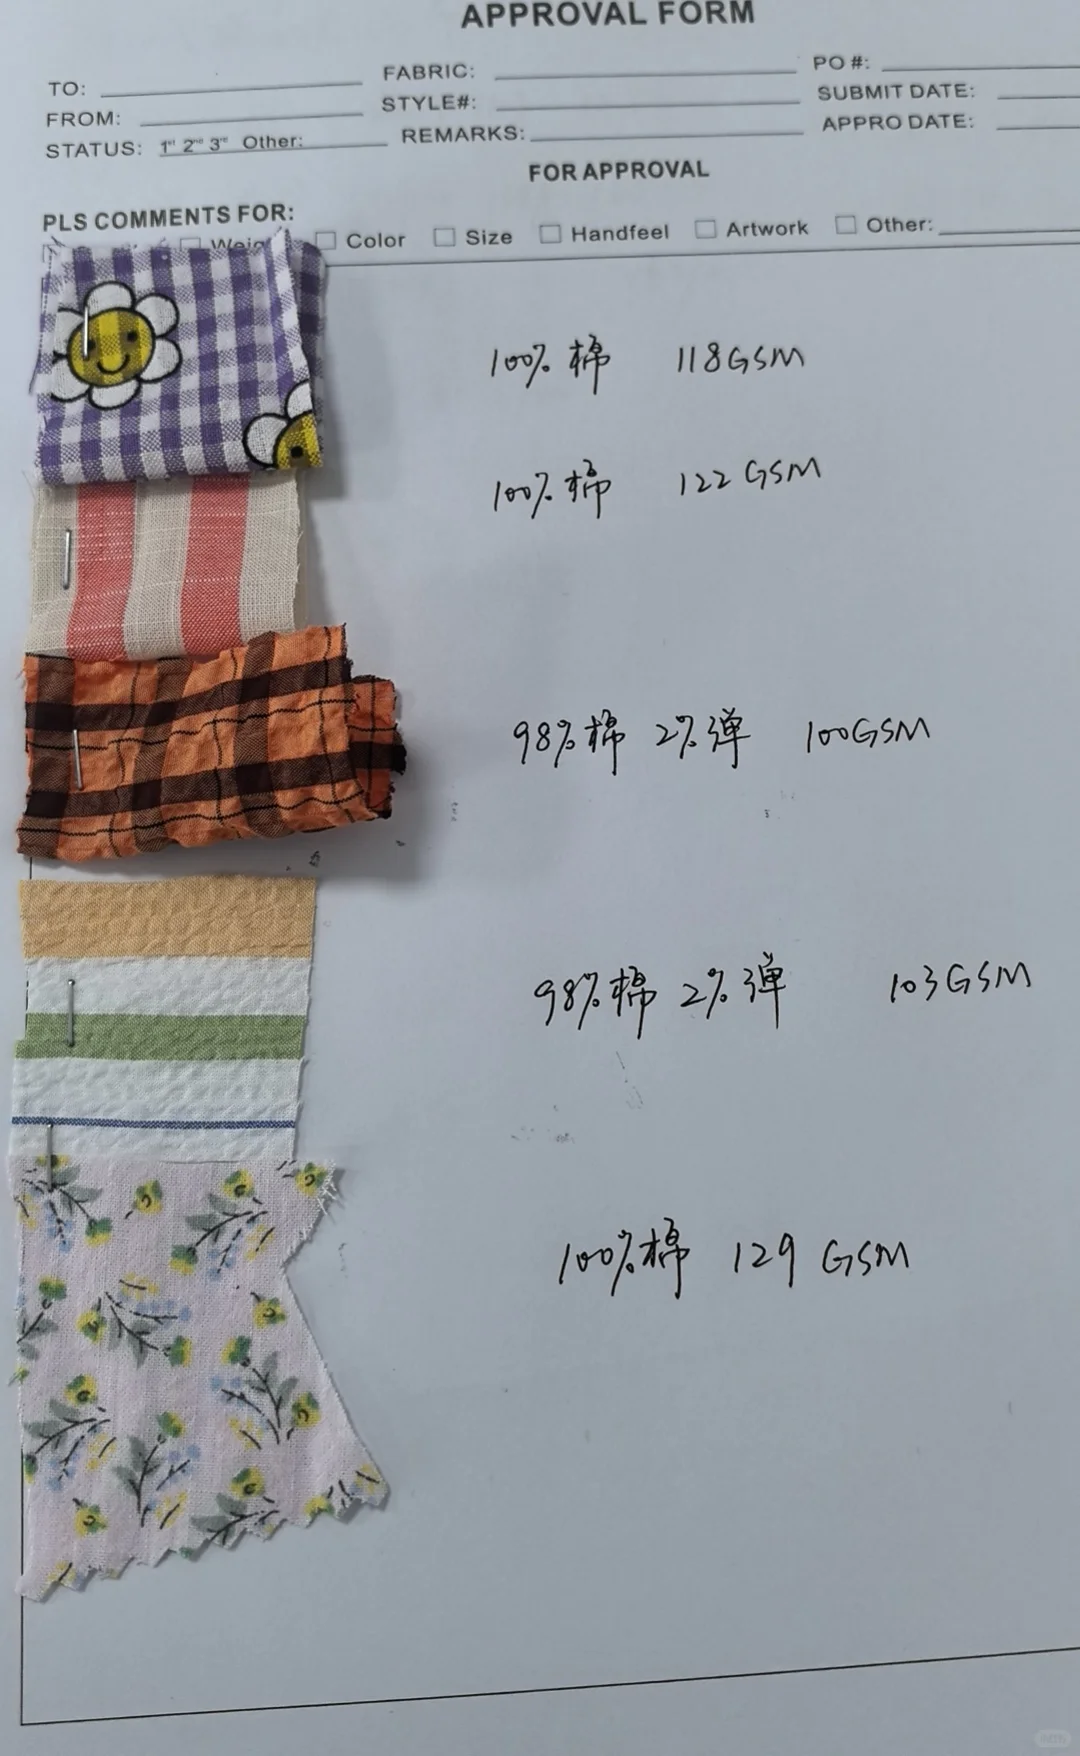 APPROVAL FORM
TO: FABRIC: PO #:
FROM: STYLE#: SUBMIT DATE:
STATUS: 1st 2nd 3rd Other: REMARKS: APPRO DATE:
FOR APPROVAL
PLS COMMENTS FOR:
Color Size Handfeel Artwork Other:
100% 棉 118GSM
100% 棉 122 GSM
98% 棉 2% 弹 100GSM
98% 棉 2% 弹 103GSM
100% 棉 129 GSM